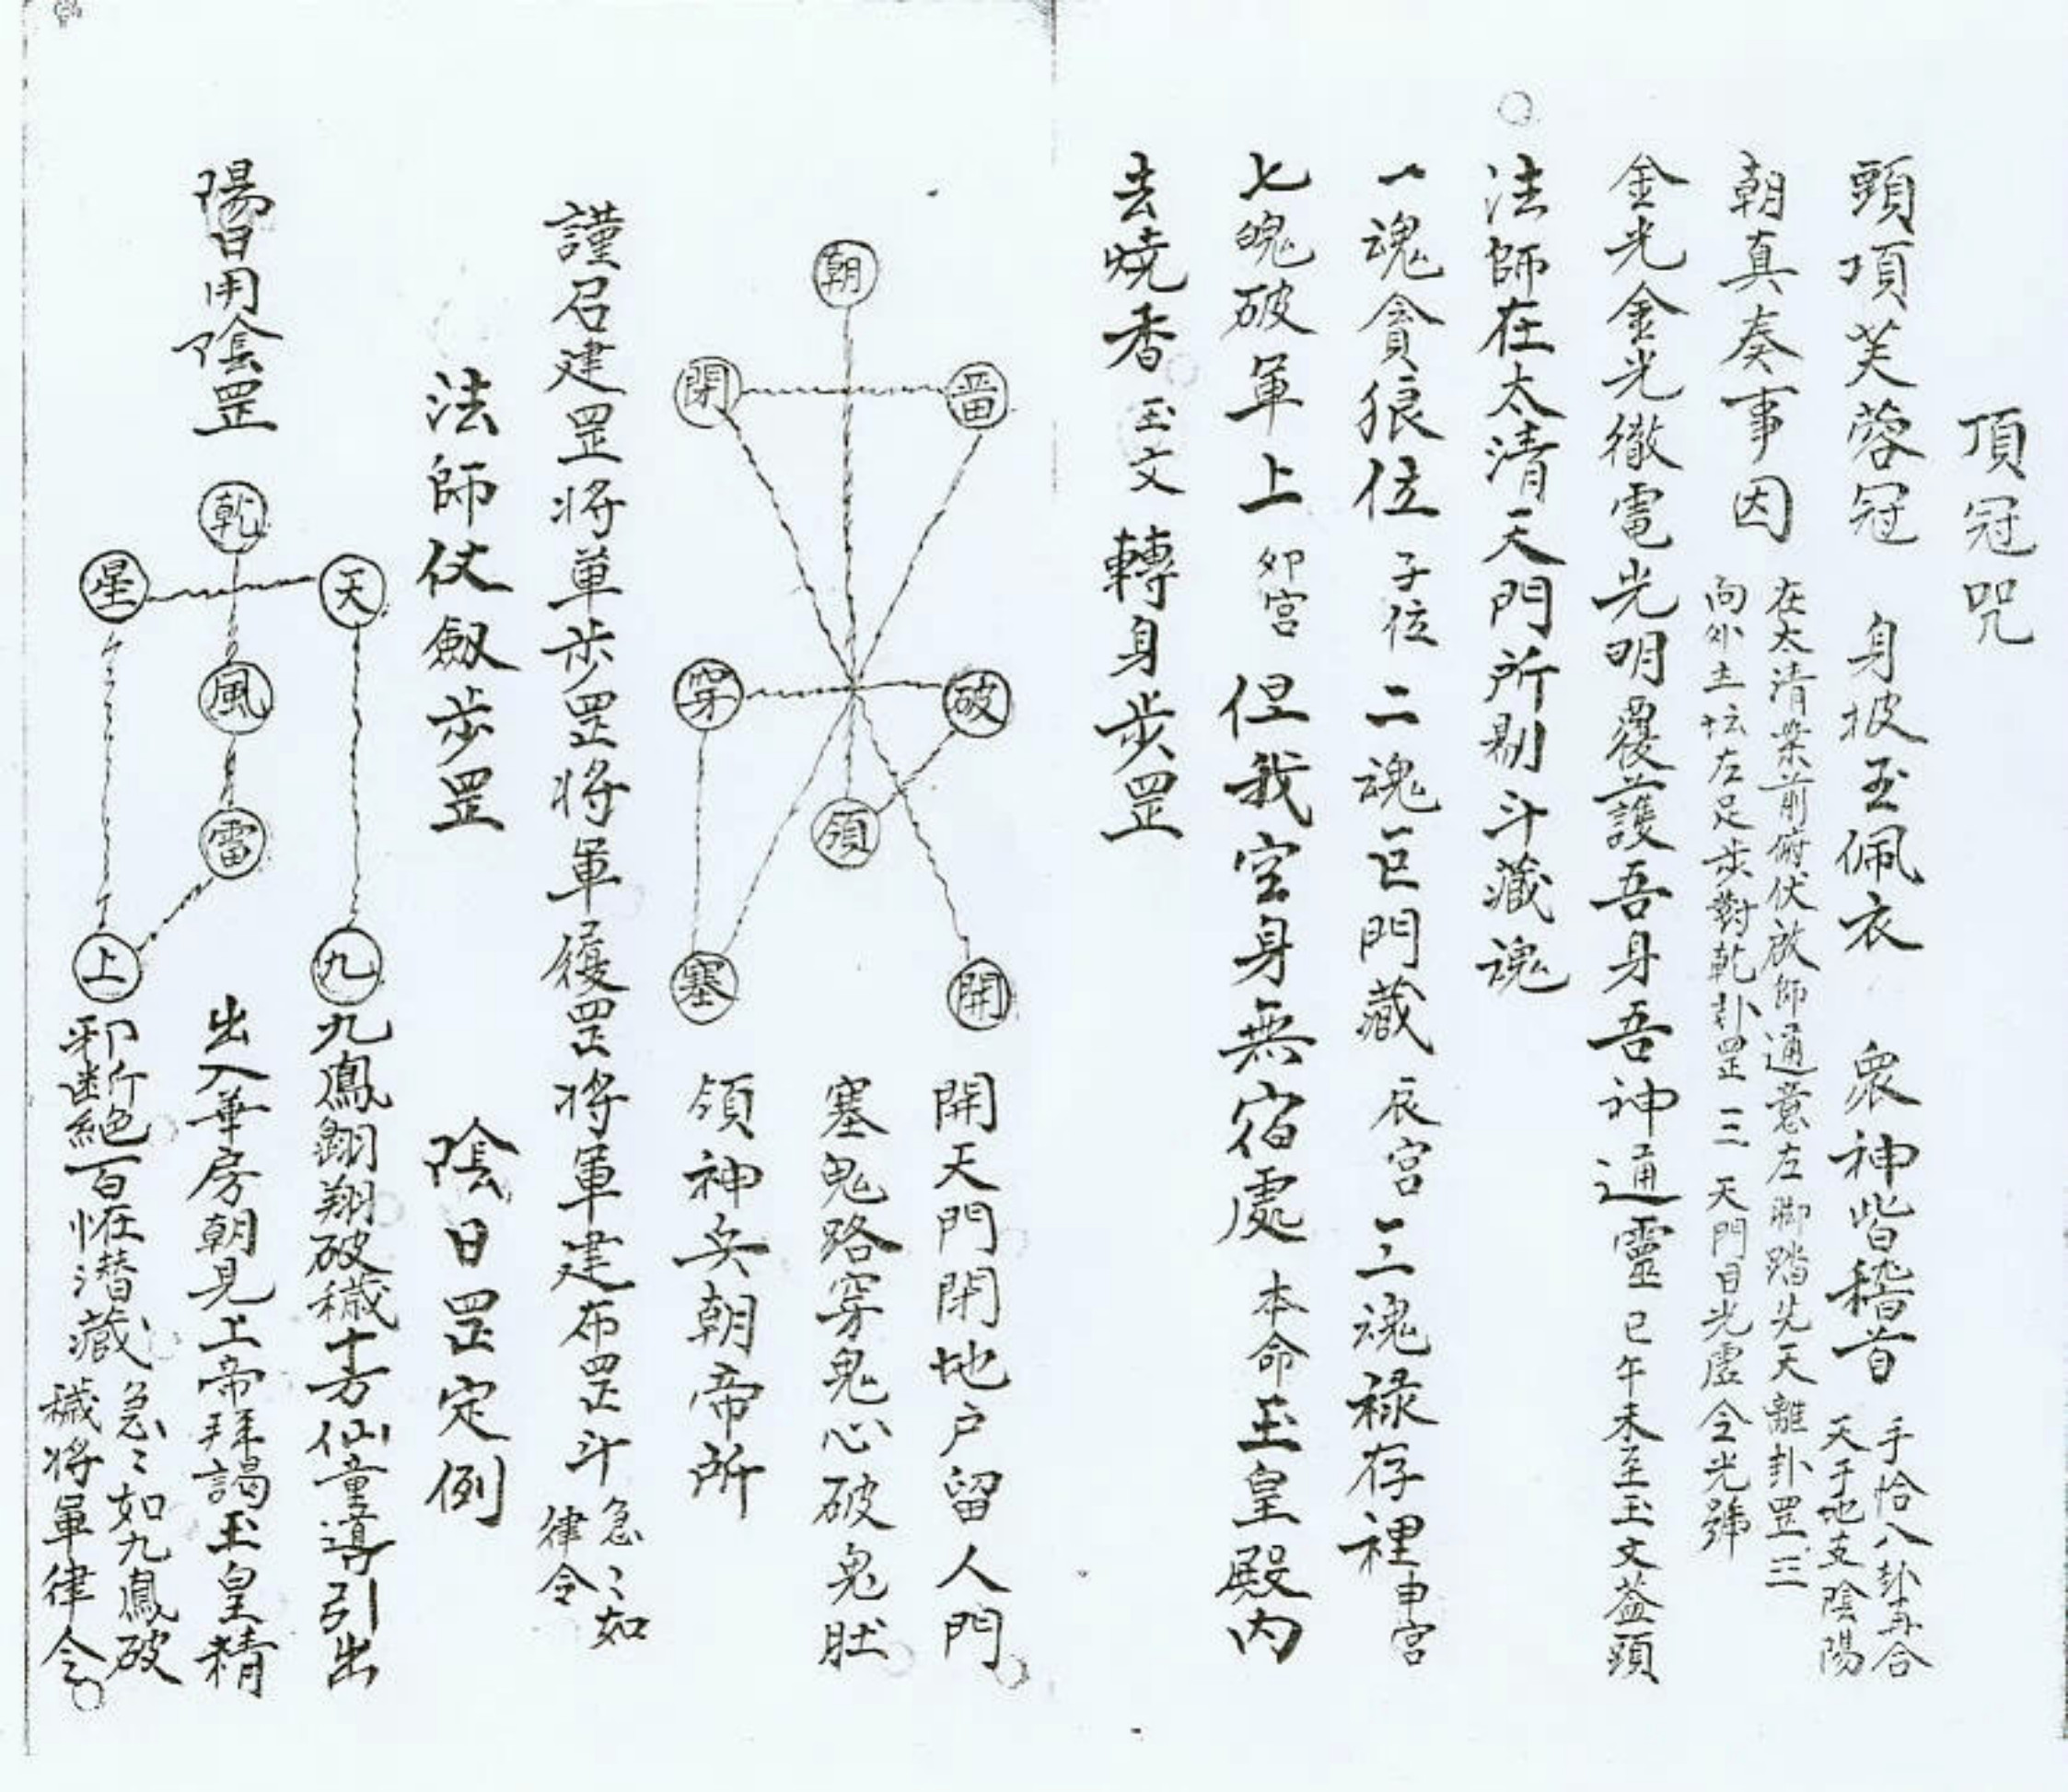 頂冠咒
頭頂芙蓉冠 身披玉佩衣 衆神皆稽首
手恰八卦再合
天子地支陰陽
朝真奏事因
在太清案前俯伏啟師通意左脚踏先天離卦罡三
向外主坛左足步對乾卦罡三 天門目光虛合光號
金光金光徹電光明覆護吾身吾神通靈 巳午未至玉文盖頭
法師在太清天門所剔斗藏魂
一魂貪狼位 子位 二魂巨門藏 辰宮 三魂禄存裡 申宮
七魄破軍上 卯宮 但我空身無宿處 本命玉皇殿内
去燒香 玉文 轉身步罡
朝
閉
留
穿
破
領
塞
開
開天門閉地户留人門
塞鬼路穿鬼心破鬼肚
領神兵朝帝所
謹召建罡将单步罡将軍履罡将軍建布罡斗
急〻如
律令
法師仗劔步罡 陰日罡定例
陽日用陰罡
乾
天
星
風
雷
九
上
九鳳翱翔破穢十方仙童導引出
出入華房朝見上帝拜謁玉皇精
邪断絕百恠潜藏
急〻如九鳳破
穢将軍律令